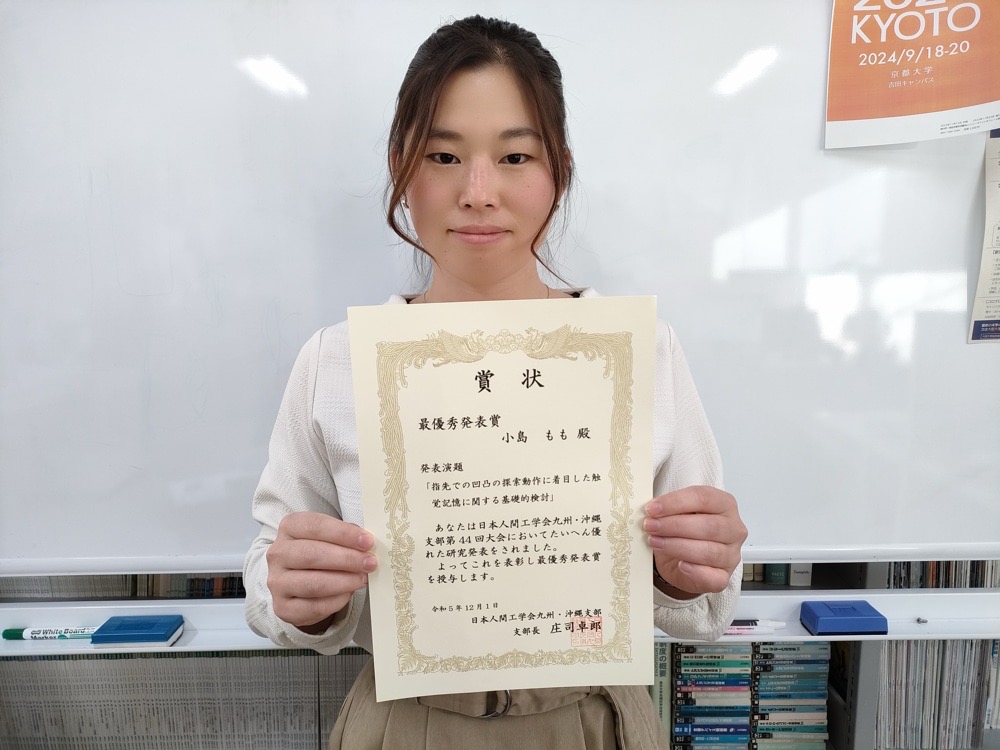 KYOTO
2024/9/18-20
京都大学
吉田キャンパス
賞 状
最優秀発表賞
小島 もも 殿
発表演題
「指先での凹凸の探索動作に着目した触
覚記憶に関する基礎的検討」
あなたは日本人間工学会九州・沖縄
支部第44回大会においてたいへん優
れた研究発表をされました。
よってこれを表彰し最優秀発表賞
を授与します。
令和5年12月1日
日本人間工学会九州・沖縄支部
支部長 庄司卓郎
White Board
Marker